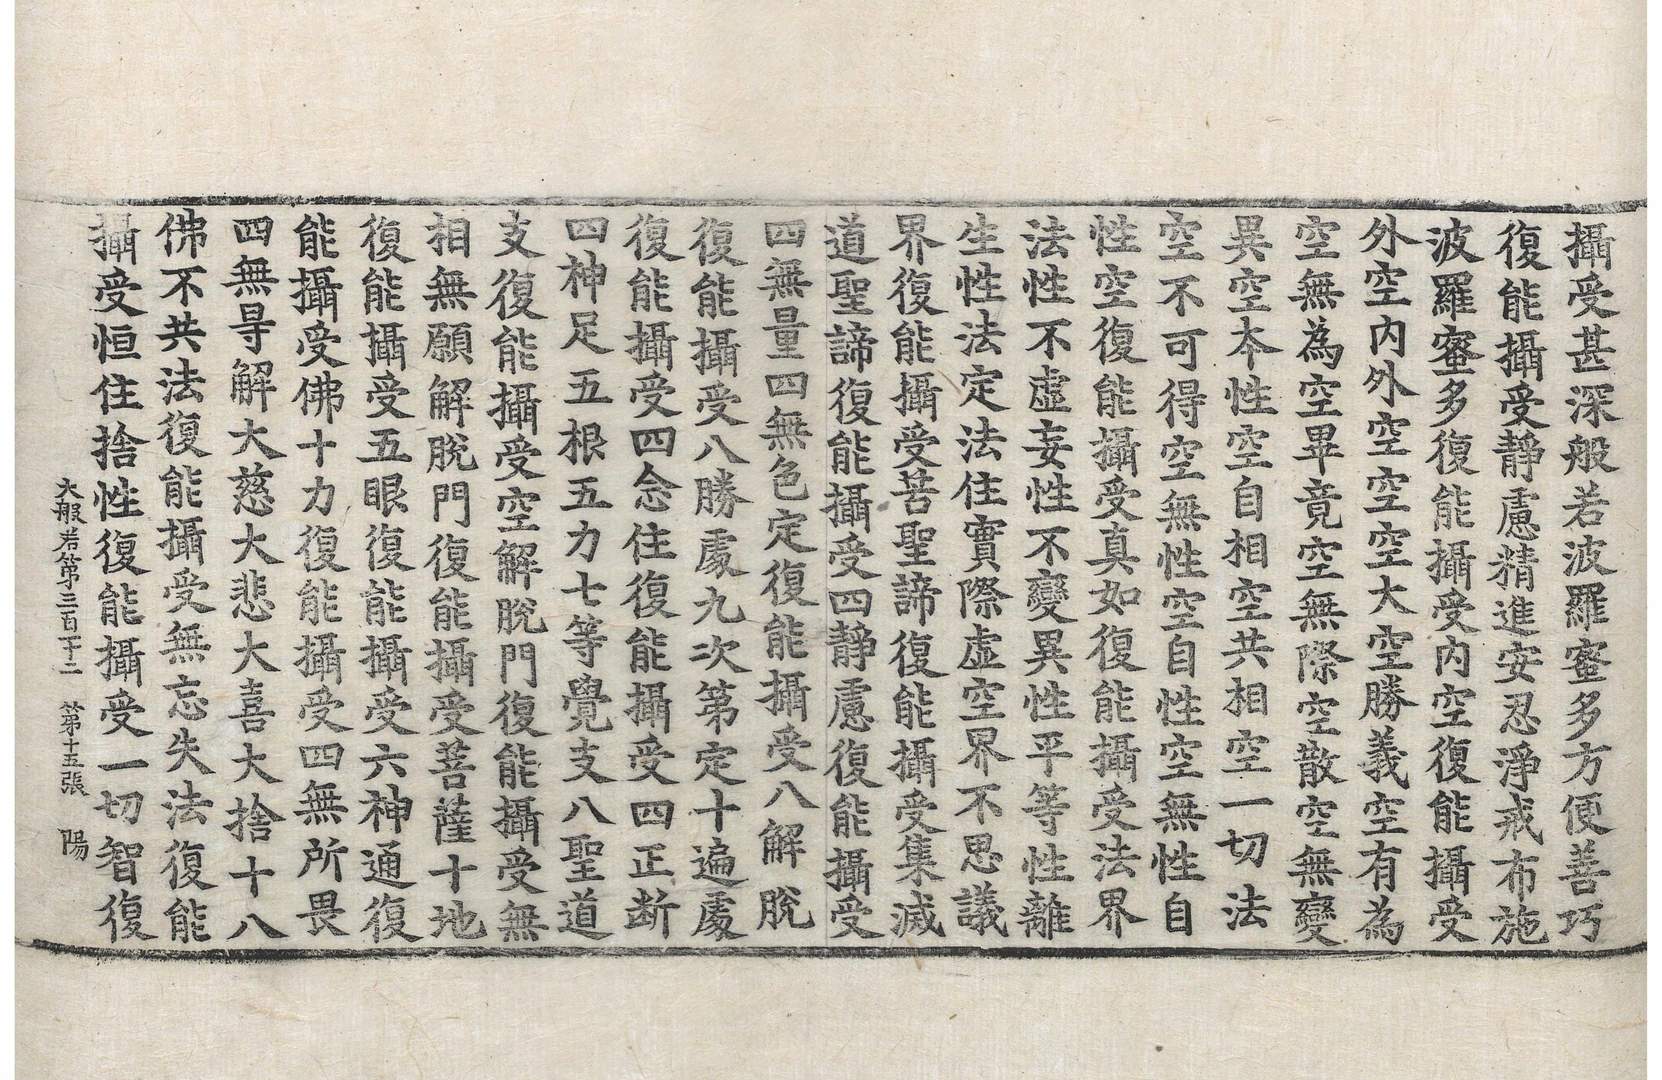 攝受甚深般若波羅蜜多方便善巧
復能攝受靜慮精進安忍淨戒布施
波羅蜜多復能攝受内空復能攝受
外空内外空空空大空勝義空有為
空無為空畢竟空無際空散空無變
異空本性空自相空共相空一切法
空不可得空無性空自性空無性自
性空復能攝受真如復能攝受法界
法性不虛妄性不變異性平等性離
生性法定法住實際虛空界不思議
界復能攝受苦聖諦復能攝受集滅
道聖諦復能攝受四靜慮復能攝受
四無量四無色定復能攝受八解脫
復能攝受八勝處九次第定十遍處
復能攝受四念住復能攝受四正斷
四神足五根五力七等覺支八聖道
支復能攝受空解脫門復能攝受無
相無願解脫門復能攝受菩薩十地
復能攝受五眼復能攝受六神通復
能攝受佛十力復能攝受四無所畏
四無㝵解大慈大悲大喜大捨十八
佛不共法復能攝受無忘失法復能
攝受恒住捨性復能攝受一切智復
大般若第三百十二　第十五張　陽